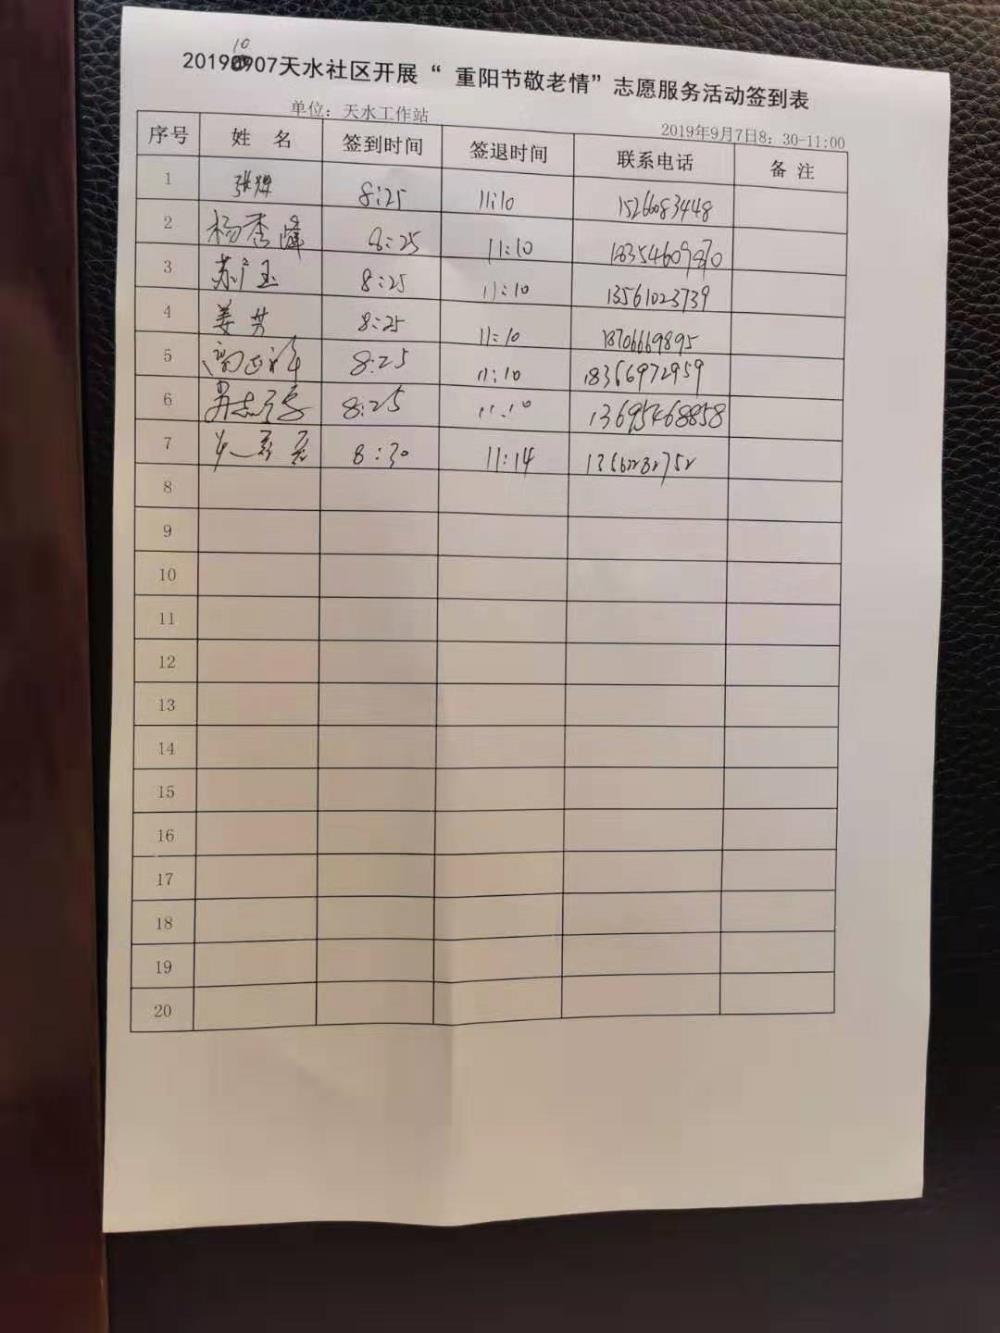 10
20190907天水社区开展“重阳节敬老情”志愿服务活动签到表
单位：天水工作站 2019年9月7日8：30-11:00
序号 姓 名 签到时间 签退时间 联系电话 备 注
1 张辉 8:25 11:10 15266083448
2 杨秀峰 8:25 11:10
3 苏广玉 8:25 11:10 13561023739
4 姜芳 8:25 11:10 18706669895
5 8:25 11:10 18366972959
6 8:25 11:10 13695468858
7 8:30 11:14
8
9
10
11
12
13
14
15
16
17
18
19
20